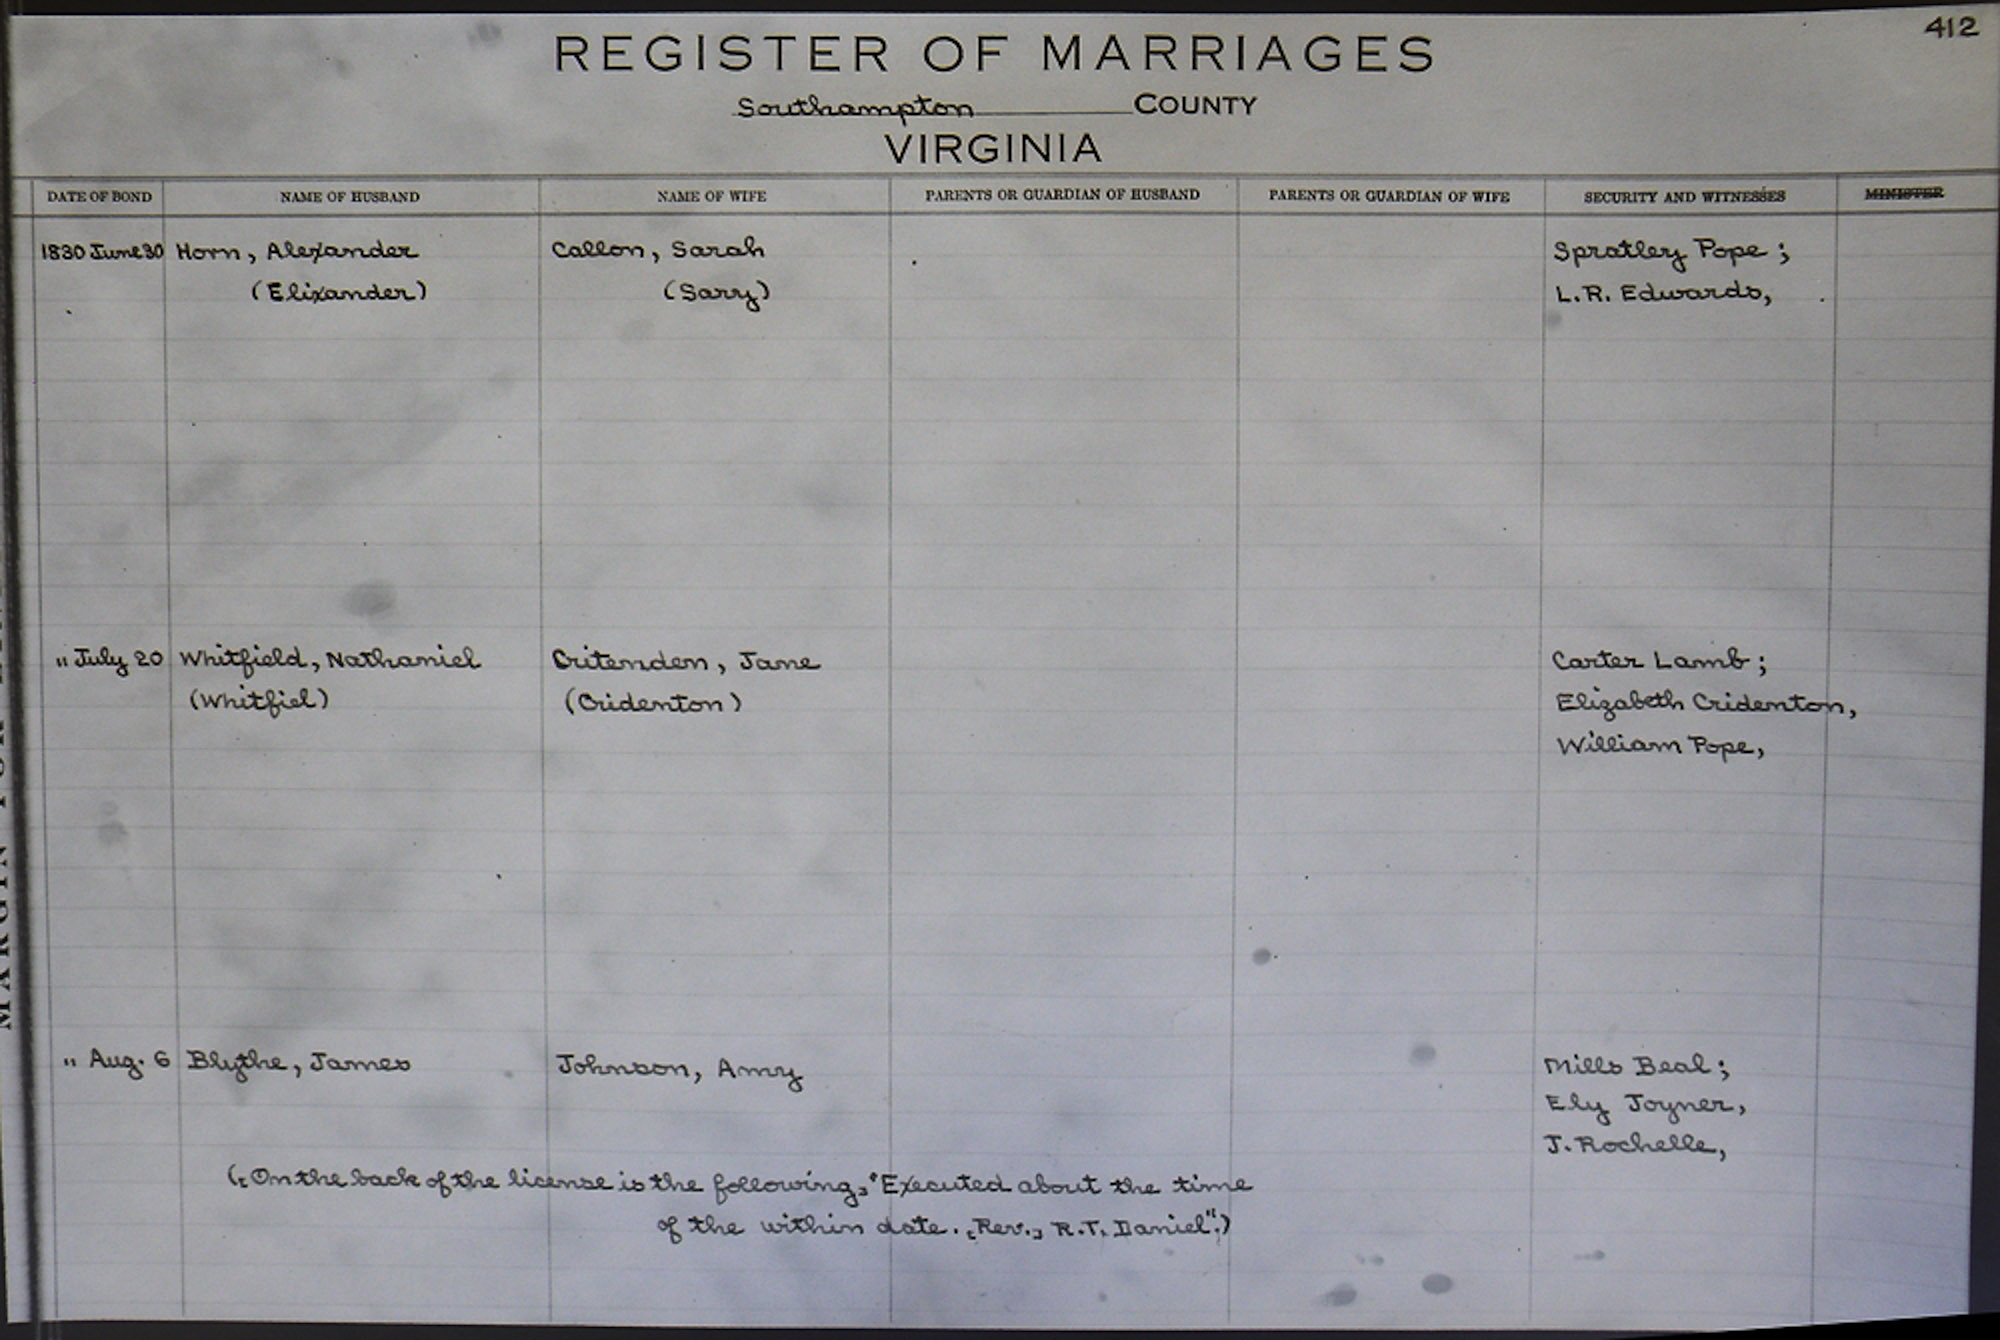 412
REGISTER OF MARRIAGES
Southampton COUNTY
VIRGINIA
DATE OF BOND NAME OF HUSBAND NAME OF WIFE PARENTS OR GUARDIAN OF HUSBAND PARENTS OR GUARDIAN OF WIFE SECURITY AND WITNESSES MINISTER
1830 June 30 Horn, Alexander Callon, Sarah Spratley Pope;
(Elixander) (Sary) L.R. Edwards,
" July 20 Whitfield, Nathaniel Critenden, Jane Carter Lamb;
(Whitfiel) (Cridenton) Elizabeth Cridenton,
William Pope,
" Aug. 6 Blythe, James Johnson, Amy Mills Beal;
Ely Joyner,
J. Rochelle,
([On the back of the license is the following] "Executed about the time
of the within date. [Rev.] R.T. Daniel".)
MARGIN FOR